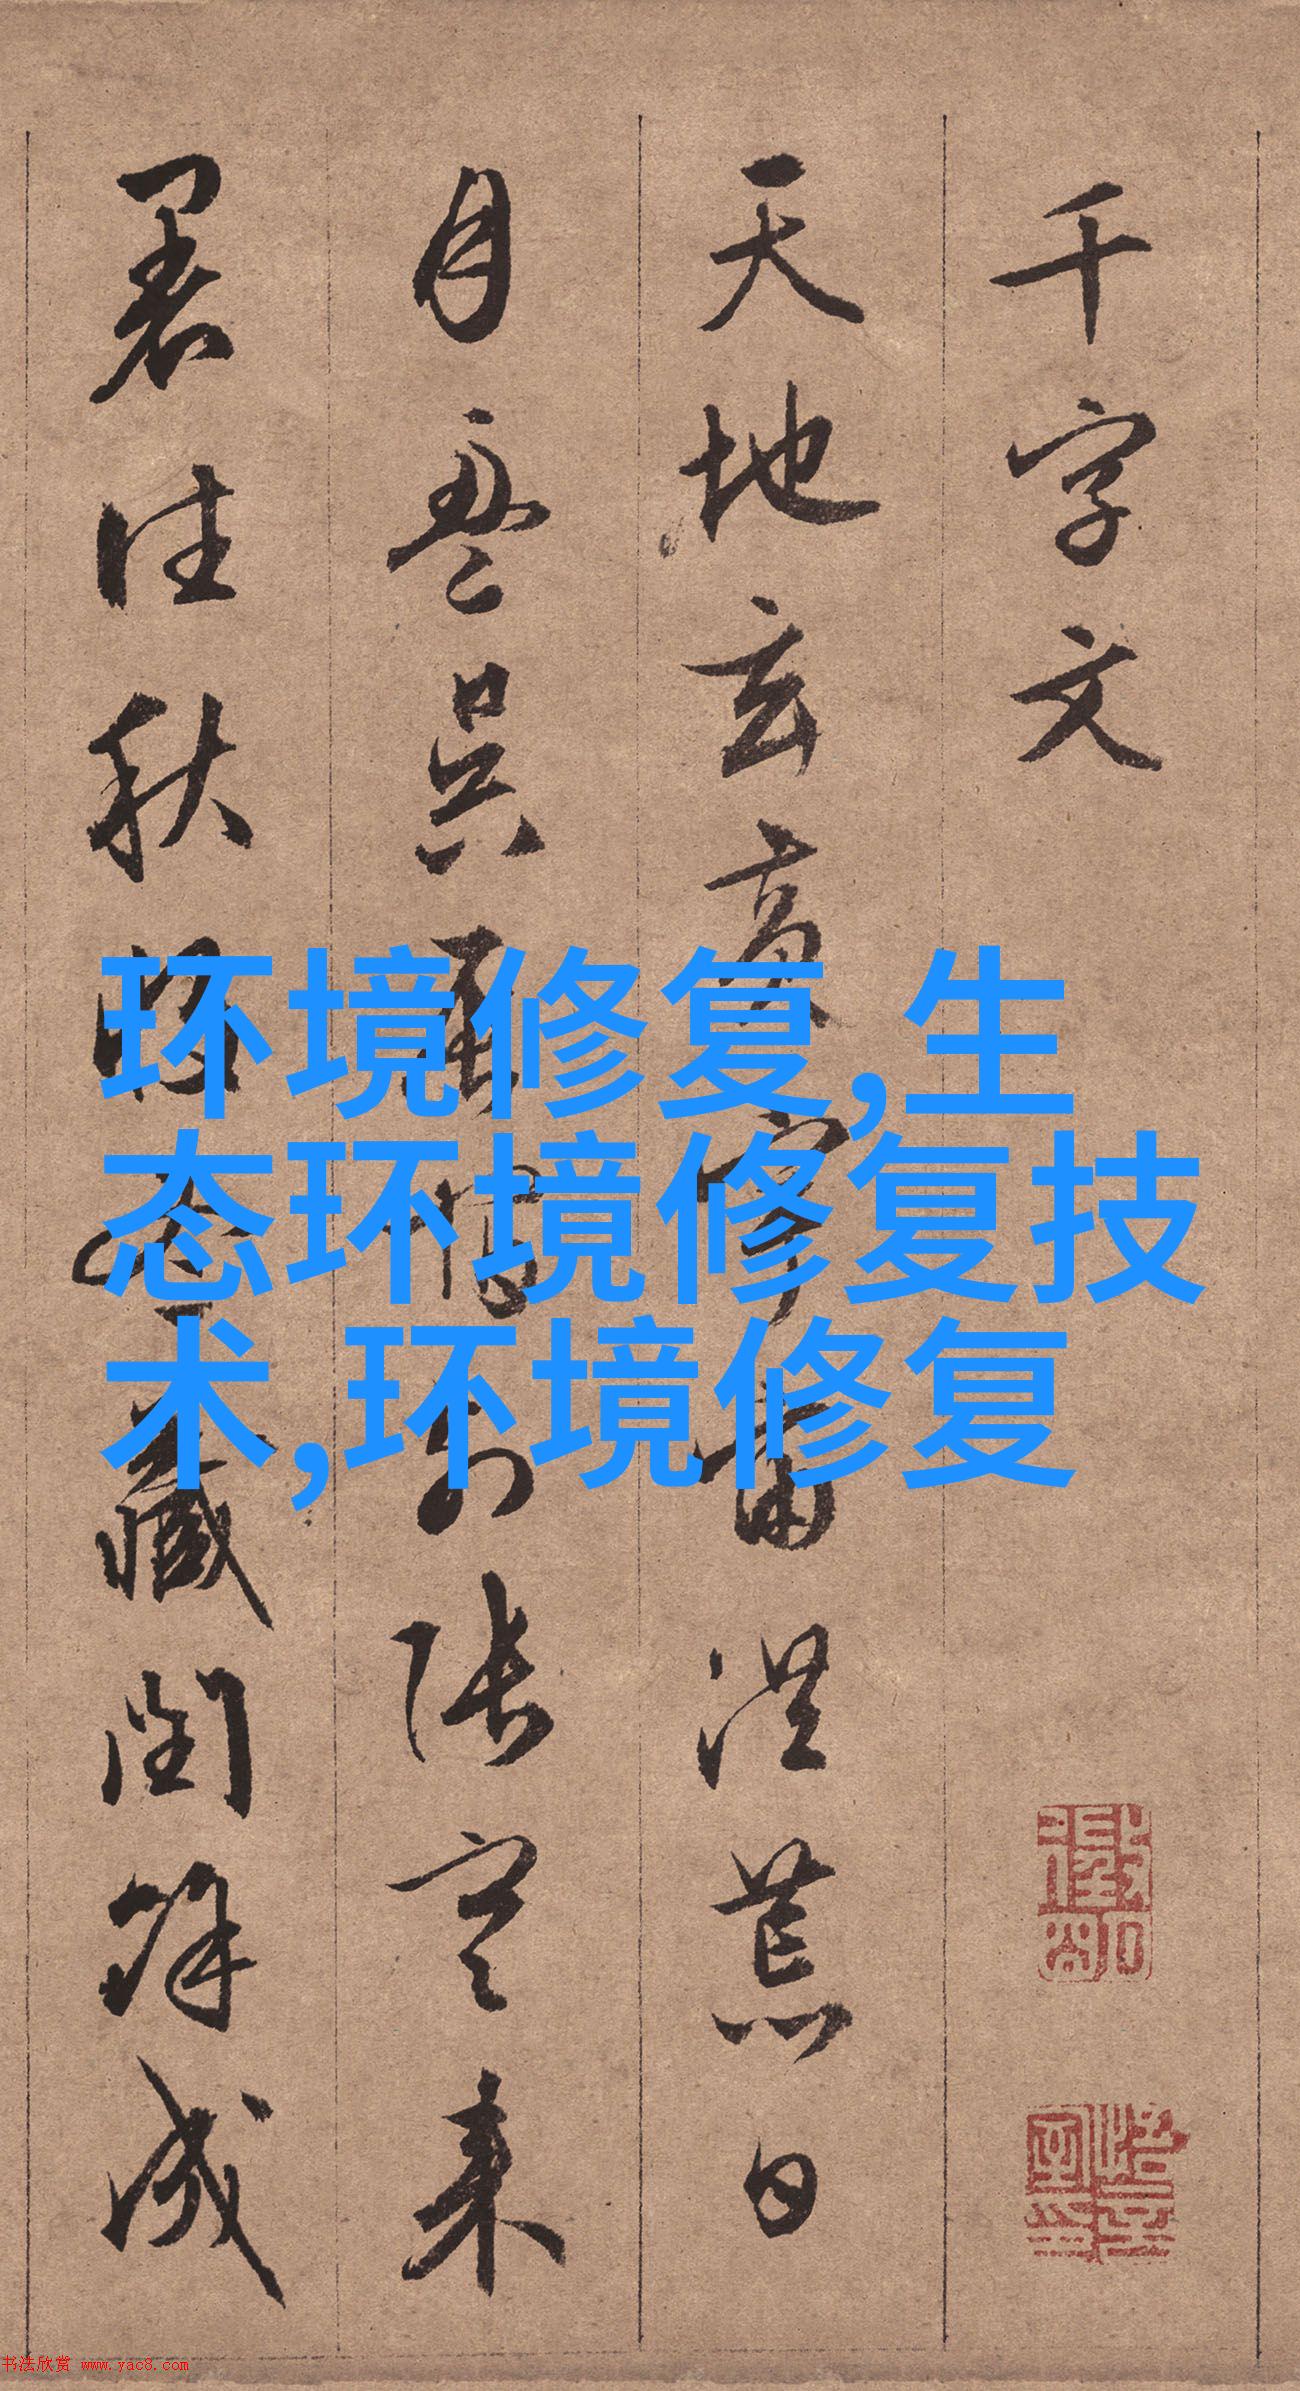 千字文
天地玄黄宇宙洪荒日
月盈昃辰宿列张寒来
暑往秋收冬藏闰余成
环境修复,生
态环境修复技
术,环境修复
书法欣赏 www.yac8.com